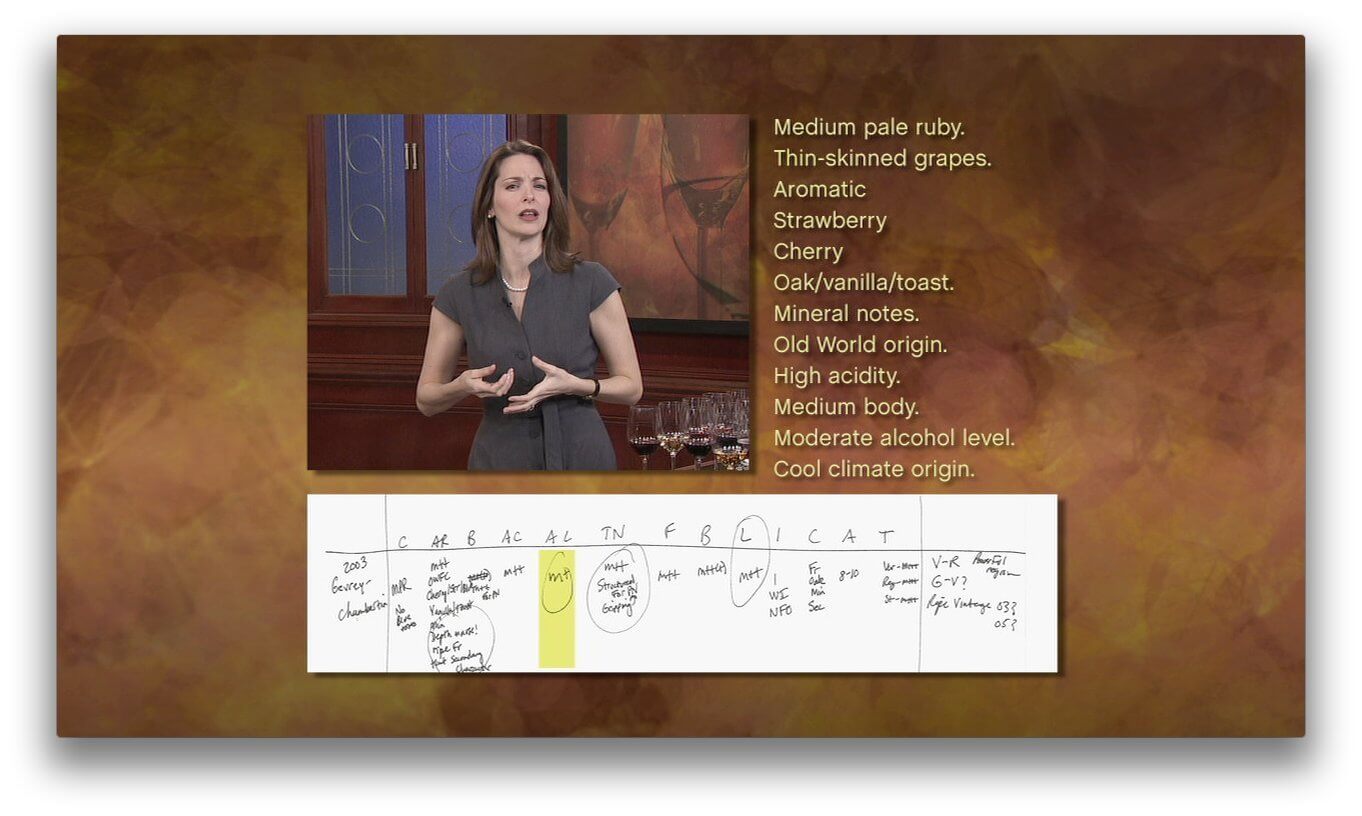 Medium pale ruby.
Thin-skinned grapes.
Aromatic
Strawberry
Cherry
Oak/vanilla/toast.
Mineral notes.
Old World origin.
High acidity.
Medium body.
Moderate alcohol level.
Cool climate origin.
C AR B AC AL TN F B L I C A T
2003
Gevrey-
Chambertin
MPR
No
Blue
notes
M+
OWFC
Vanilla/Toast
Depth
ripe Fr
Hint Secondary
Character
for PN
M+
M+
M+
Structured
For PN
Gripping
M+
M+(+)
M+
I
WI
NFO
Fr
Oak
Min
Sec
8-10
V-R Powerful
region
G-V?
Ripe Vintage 03?
05?